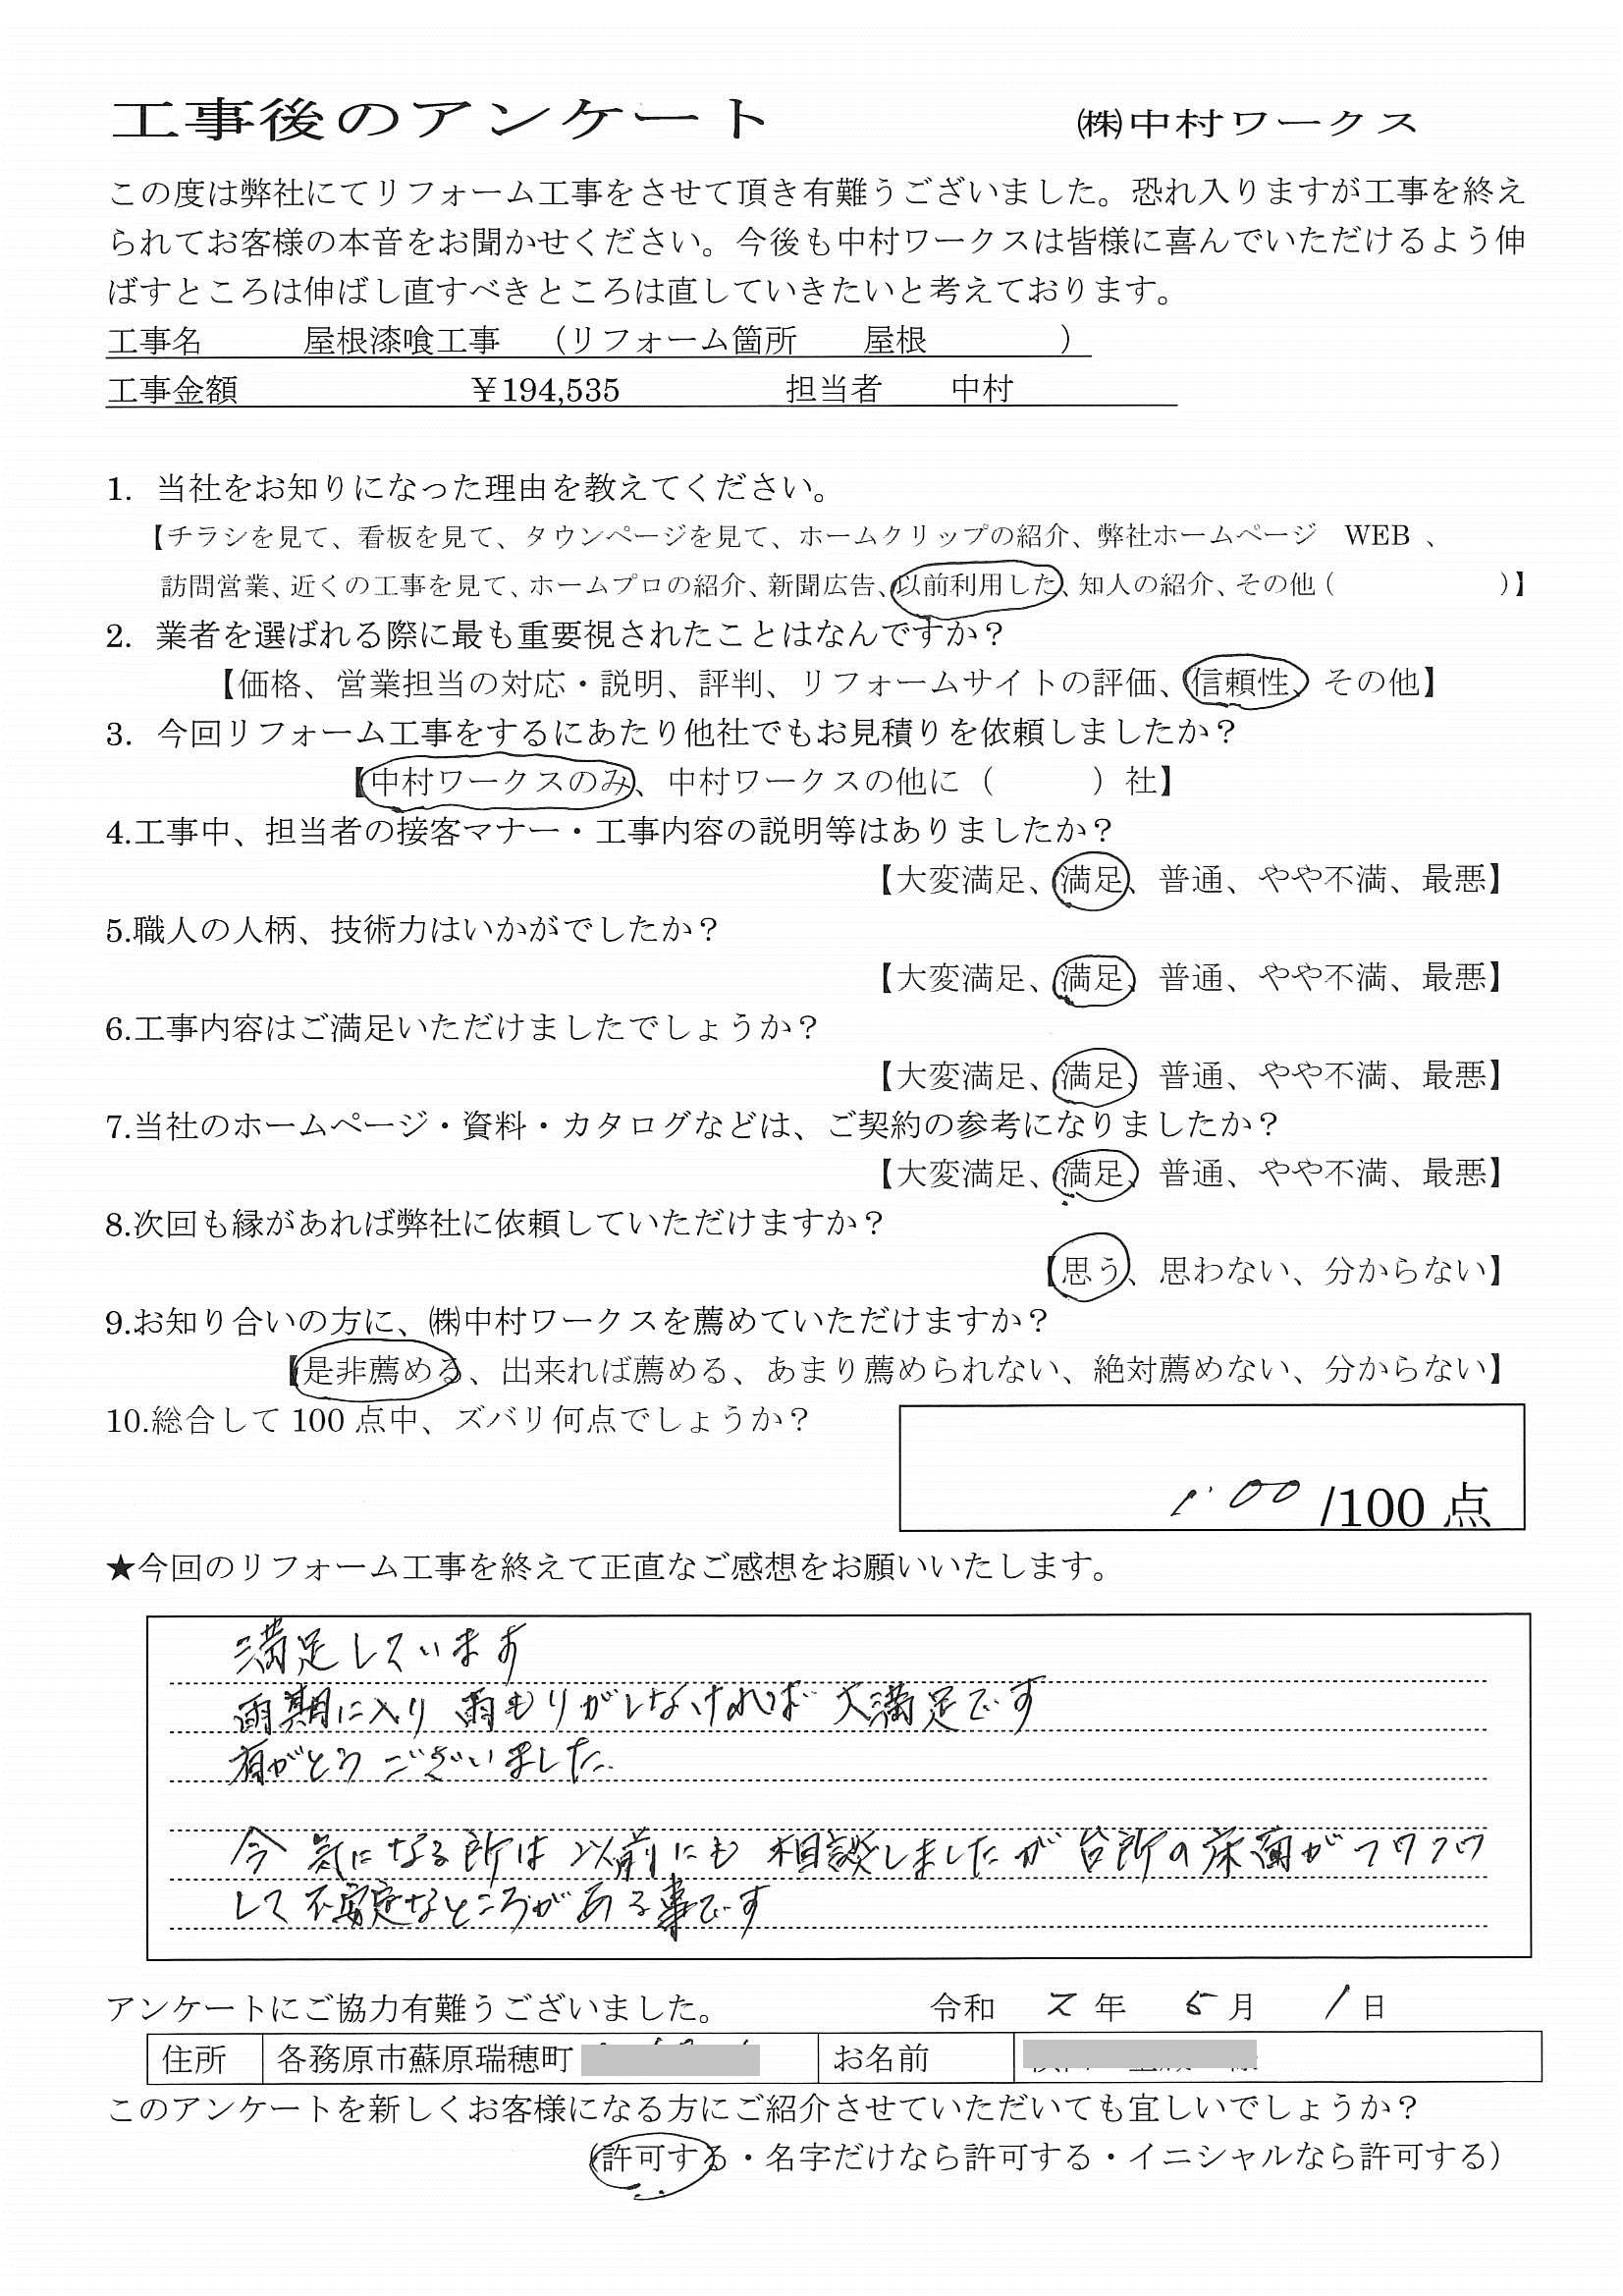 工事後のアンケート ㈱中村ワークス
この度は弊社にてリフォーム工事をさせて頂き有難うございました。恐れ入りますが工事を終え
られてお客様の本音をお聞かせください。今後も中村ワークスは皆様に喜んでいただけるよう伸
ばすところは伸ばし直すべきところは直していきたいと考えております。
工事名 屋根漆喰工事 （リフォーム箇所 屋根 ）
工事金額 ￥194,535 担当者 中村
1. 当社をお知りになった理由を教えてください。
【チラシを見て、看板を見て、タウンページを見て、ホームクリップの紹介、弊社ホームページ WEB 、
訪問営業、近くの工事を見て、ホームプロの紹介、新聞広告、以前利用した、知人の紹介、その他（ ）】
2. 業者を選ばれる際に最も重要視されたことはなんですか？
【価格、営業担当の対応・説明、評判、リフォームサイトの評価、信頼性、その他】
3. 今回リフォーム工事をするにあたり他社でもお見積りを依頼しましたか？
【中村ワークスのみ、中村ワークスの他に（ ）社】
4.工事中、担当者の接客マナー・工事内容の説明等はありましたか？
【大変満足、満足、普通、やや不満、最悪】
5.職人の人柄、技術力はいかがでしたか？
【大変満足、満足、普通、やや不満、最悪】
6.工事内容はご満足いただけましたでしょうか？
【大変満足、満足、普通、やや不満、最悪】
7.当社のホームページ・資料・カタログなどは、ご契約の参考になりましたか？
【大変満足、満足、普通、やや不満、最悪】
8.次回も縁があれば弊社に依頼していただけますか？
【思う、思わない、分からない】
9.お知り合いの方に、㈱中村ワークスを薦めていただけますか？
【是非薦める、出来れば薦める、あまり薦められない、絶対薦めない、分からない】
10.総合して 100 点中、ズバリ何点でしょうか？
100 /100 点
★今回のリフォーム工事を終えて正直なご感想をお願いいたします。
満足しています
雨期に入り 雨もりがしなければ 大満足です
有がとうございました
今 気になる所は 以前にも 相談しましたが 台所の床面がフワフワ
して不安定なところがある事です
アンケートにご協力有難うございました。 令和 2 年 5 月 1 日
住所 各務原市蘇原瑞穂町 お名前
このアンケートを新しくお客様になる方にご紹介させていただいても宜しいでしょうか？
（許可する・名字だけなら許可する・イニシャルなら許可する）